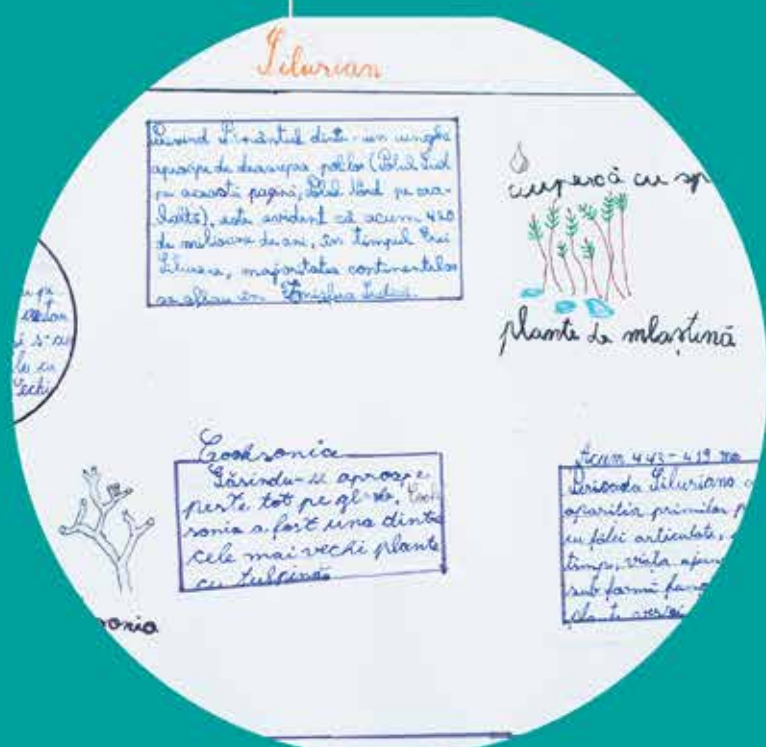 Silurian
Privind Pământul dintr-un unghi
aproape de deasupra polilor (Polul Sud
pe această pagină, Polul Nord pe cea-
laltă), este evident că acum 420
de milioane de ani, în timpul Erei
Siluriene, majoritatea continentelor
se aflau în Emisfera Sudică.
ciupercă cu sp
plante de mlaștină
Cooksonia
Găsindu-se aproape
peste tot pe glob, Cook
sonia a fost una dintre
cele mai vechi plante
cu tulpină
Acum 443-419 m
Perioada Siluriană a
apariția primilor p
cu fălci articulate,
timp, viața
sub formă
plante
sonia